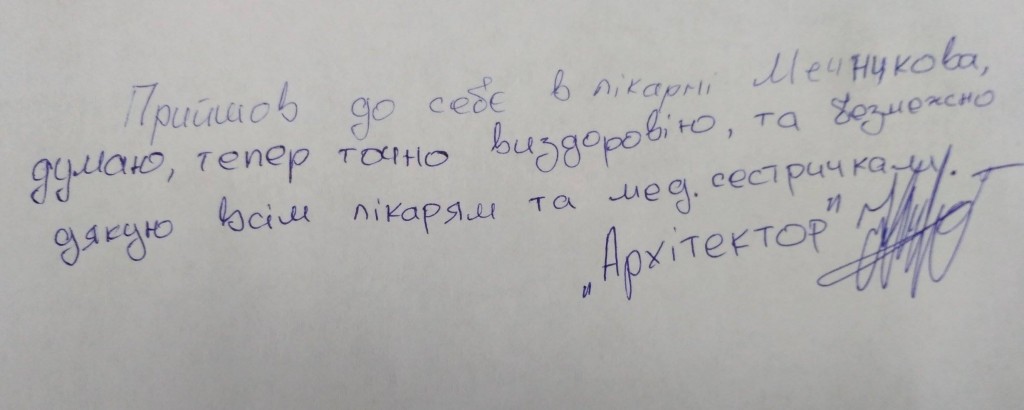 Прийшов до себе в лікарні Мечнікова,
думаю, тепер точно виздоровію, та безмежно
дякую всім лікарям та мед. сестричками.
„Архітектор"